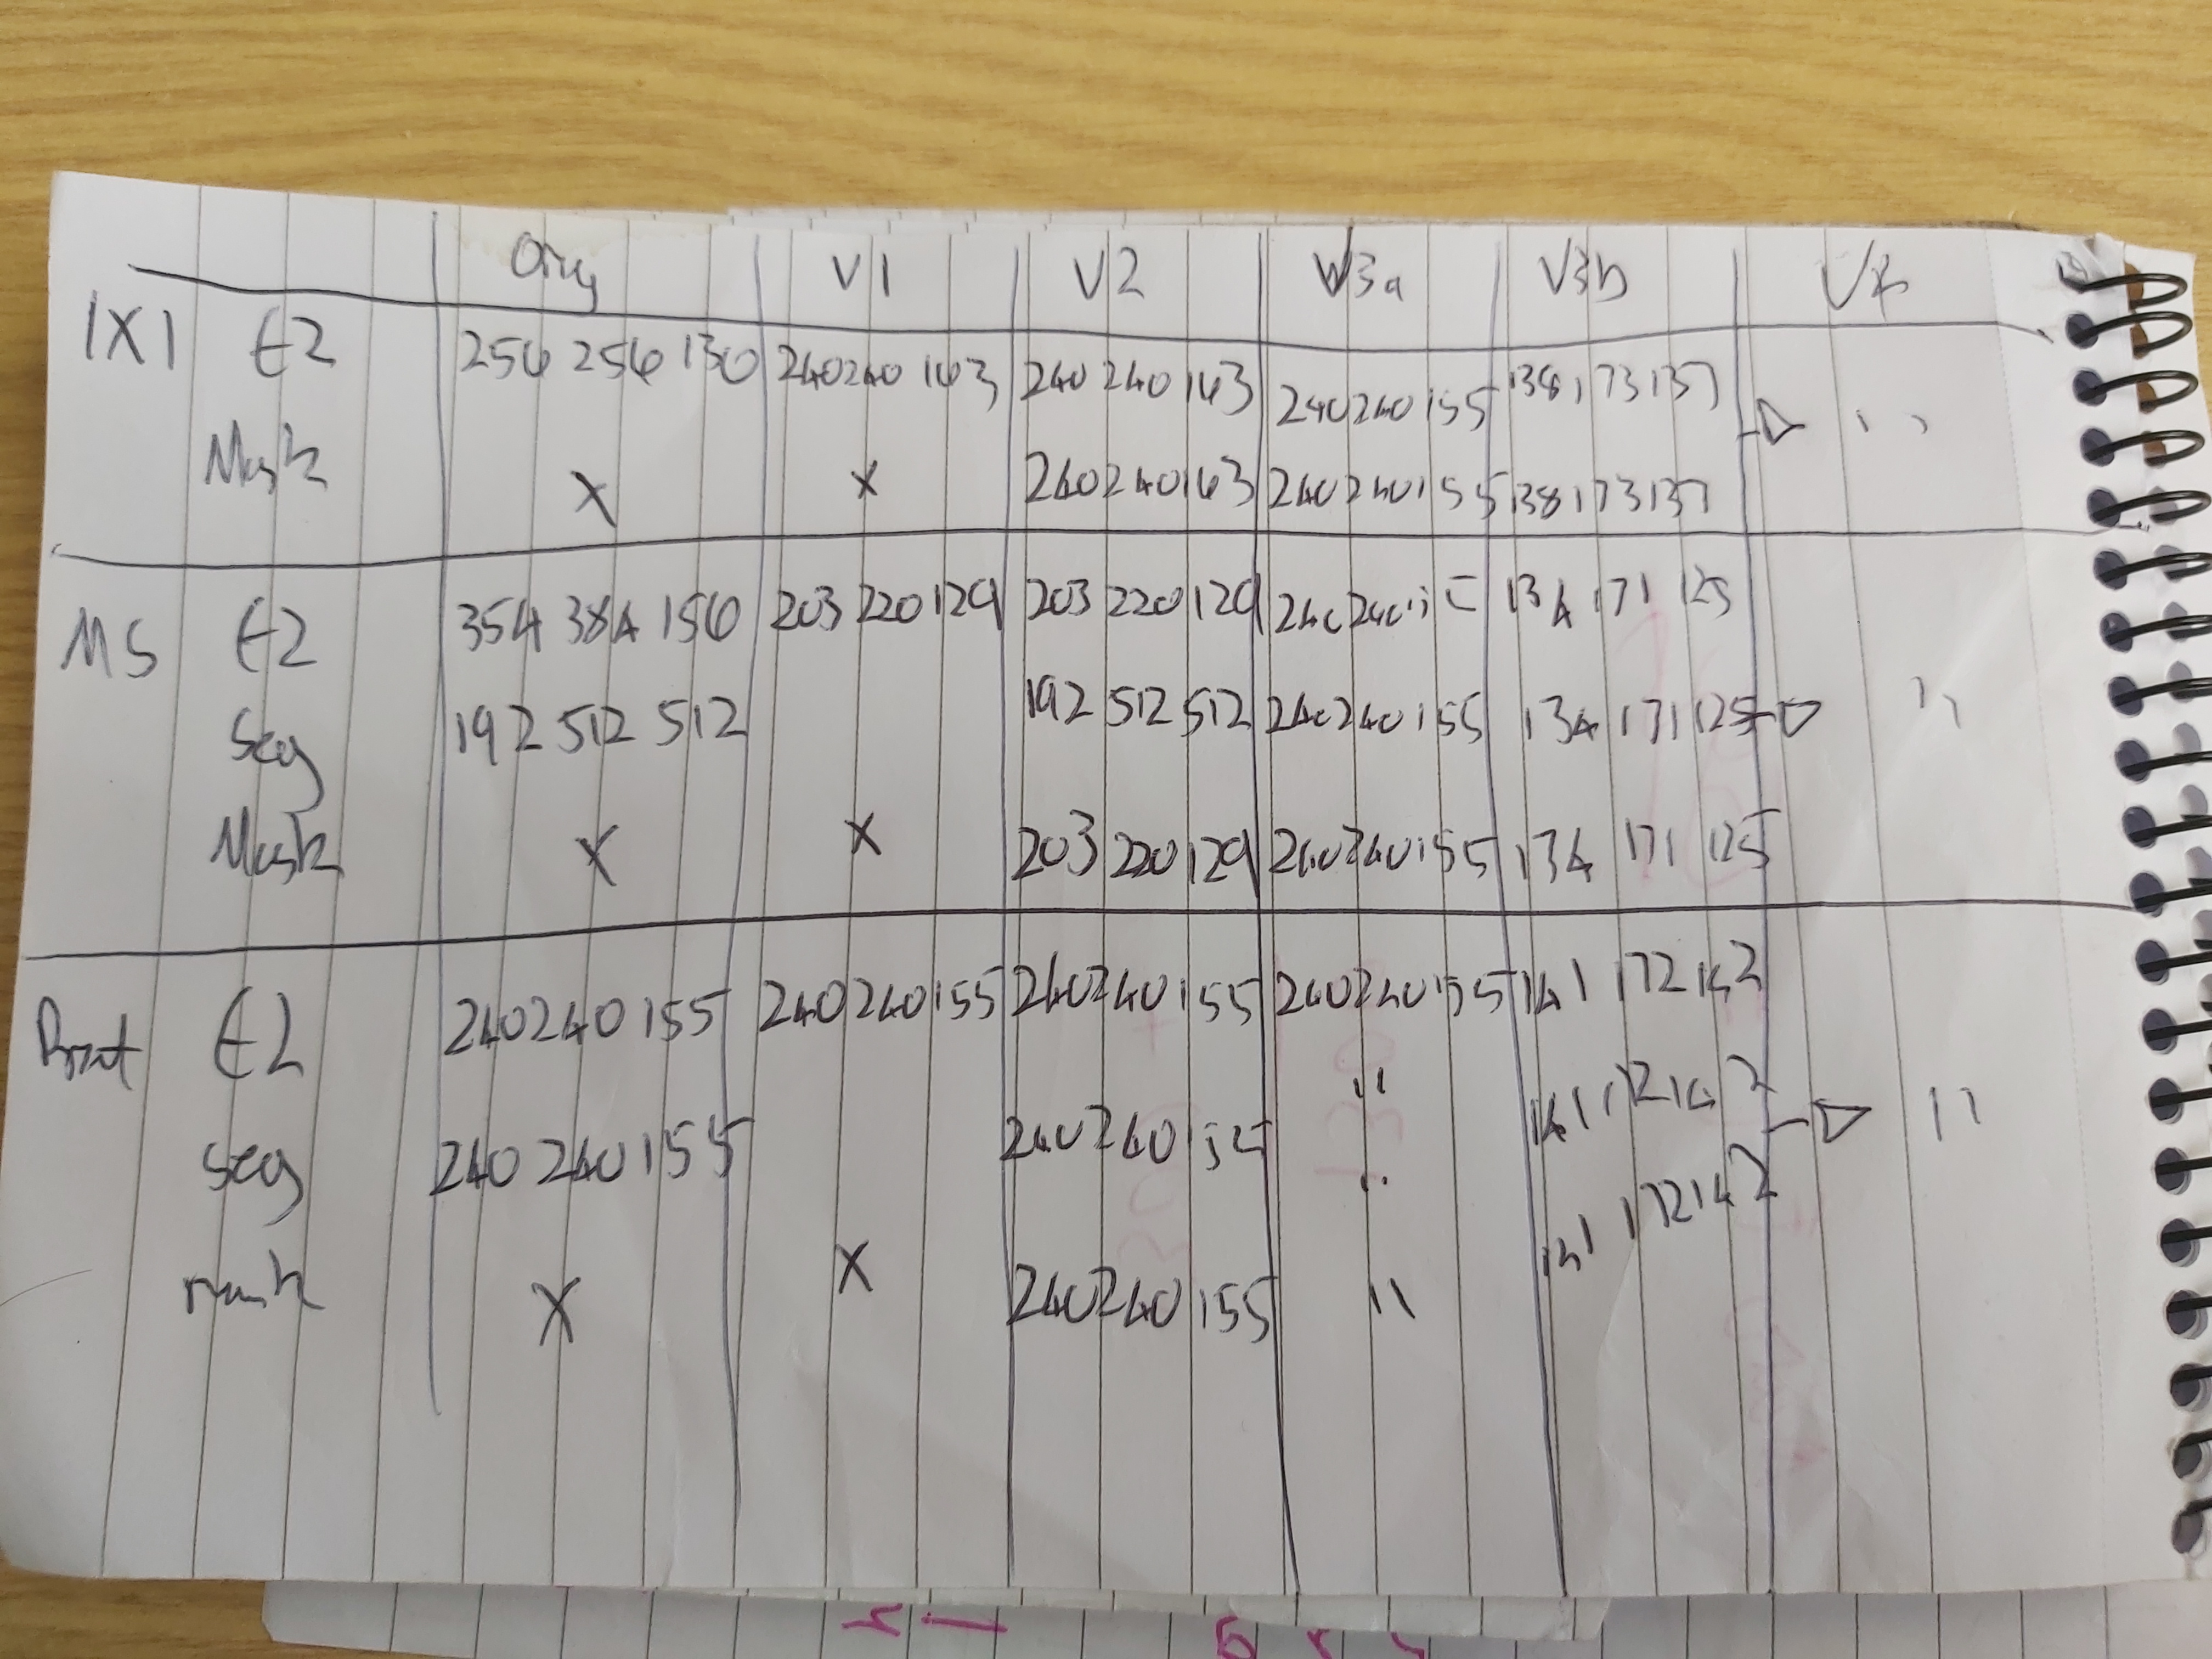 Orig V1 V2 V3a V3b V4
IXI t2 256 256 130 240 240 163 240 240 163 240 240 155 138 173 137 ''
Mask X X 240 240 163 240 240 155 138 173 137
MS t2 354 384 156 203 220 129 203 220 129 240 240 155 134 171 125
Seg 192 512 512 192 512 512 240 240 155 134 171 125 ''
Mask X X 203 220 129 240 240 155 134 171 125
Brat t2 240 240 155 240 240 155 240 240 155 240 240 155 141 172 142
seg 240 240 155 240 240 155 '' 141 172 142 ''
mask X X 240 240 155 '' 141 172 142